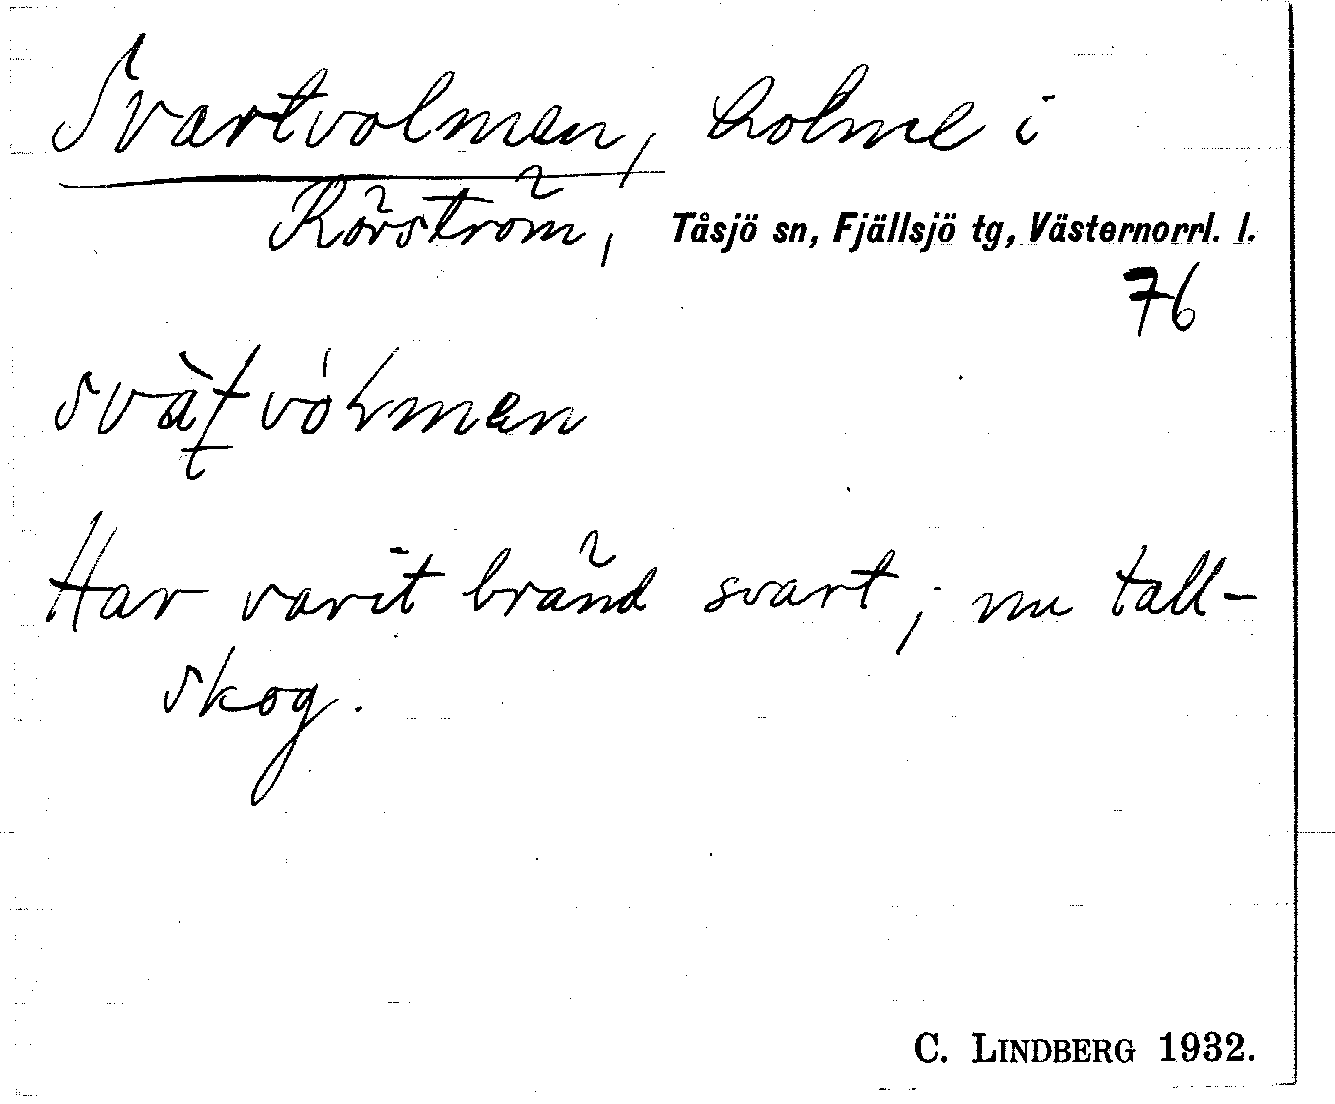 Svartvolmen, holme i
Rörström, Tåsjö sn, Fjällsjö tg, Västernorrl. l.
76
Har varit bränd svart; nu tall-
skog.
C. LINDBERG 1932.